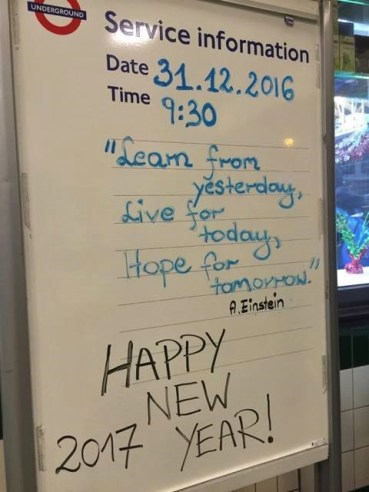 UNDERGROUND
Service information
Date 31.12.2016
Time 9:30
"Learn from
yesterday,
Live for
today,
Hope for
tomorrow."
A.Einstein
HAPPY
NEW
2017 YEAR!